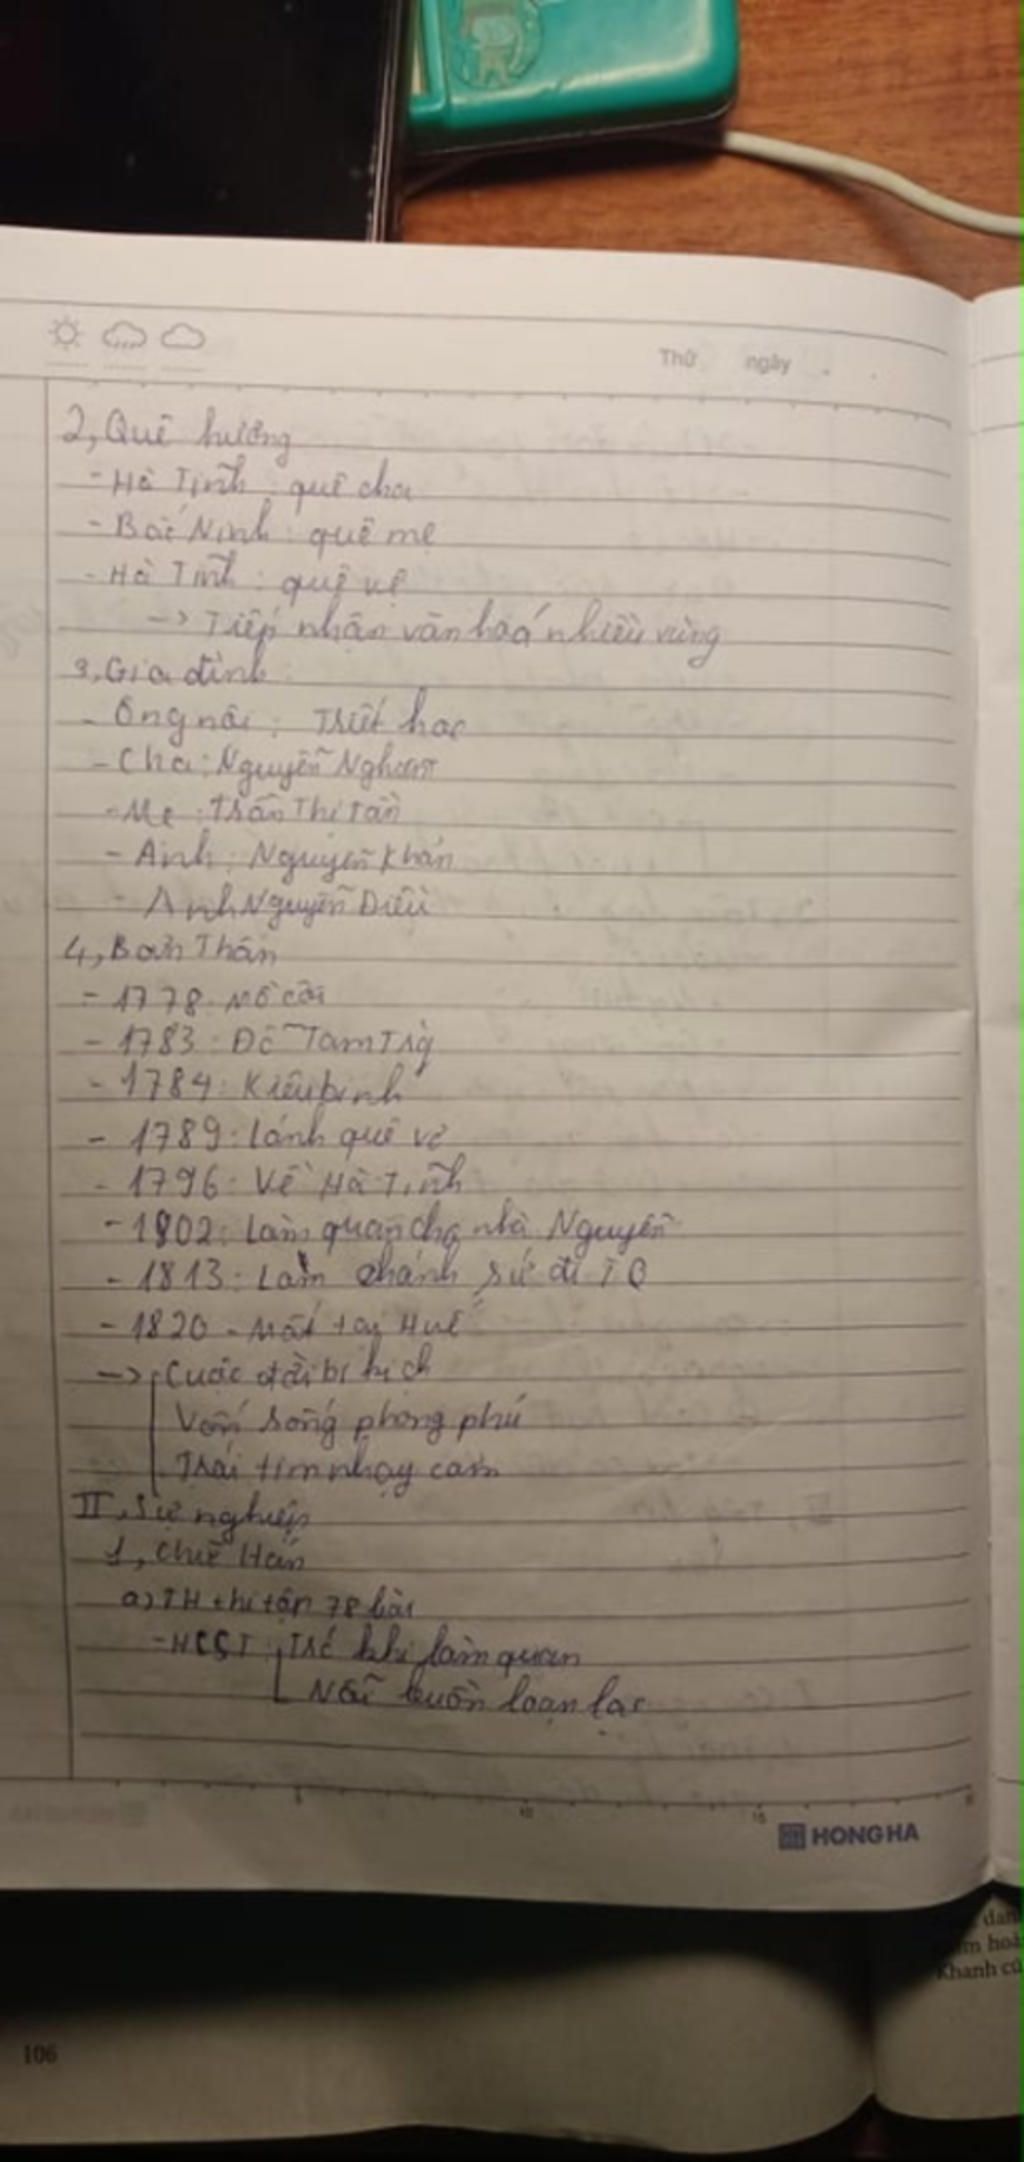 Thứ ngày
2, Quê hương
- Hà Tĩnh : quê cha
- Bắc Ninh : quê mẹ
- Hà Tĩnh : quê vợ
-> Tiếp nhận văn hoá nhiều vùng
3, Gia đình :
- Ông nội : Triết học
- Cha : Nguyễn Nghiễm
- Mẹ : Trần Thị Tần
- Anh : Nguyễn Khản
- Anh Nguyễn Điều
4, Bản Thân
- 1778. Mồ côi
- 1783 : Đỗ Tam Trg
- 1784 : Kiêu binh
- 1789 : Lánh quê vợ
- 1796 : Về Hà Tĩnh
- 1802 : Làm quan cho nhà Nguyễn
- 1813 : Làm chánh sứ đi TQ
- 1820 - Mất tại Huế
-> Cuộc đời bi kịch
Vốn sống phong phú
Trái tim nhạy cảm
II, Sự nghiệp
1, Chữ Hán
a) TH thi tập 78 bài
- Trc khi làm quan
Nỗi buồn loạn lạc
HONG HA
106
Khanh